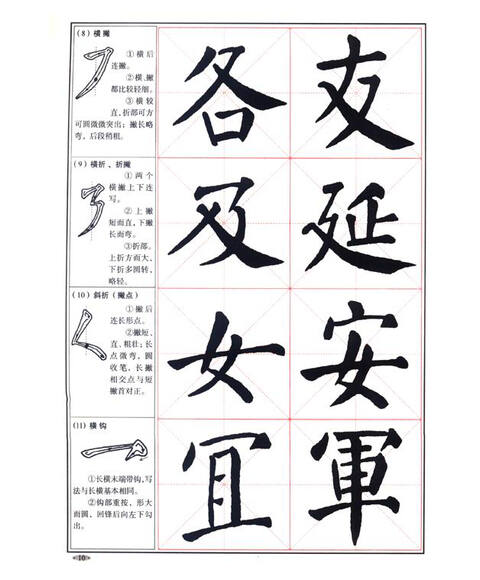 (8)横撇
①横后
连撇。
②横、撇
都比较轻细。
③横较
直,折部可方
可圆微微突出;撇长略
弯,后段稍粗。
各
(9)横折、折撇
①两个
横撇上下连
写。
②上撇
短而直,下撇
长而弯。
③折部。
上折方而大,
下折多圆转,
略轻。
及 延
(10)斜折(撇点)
①撇后
连长形点。
②撇短、
直、粗壮;长
点微弯,圆
收笔,长撇
相交点与短
撇首对正。
女 安
(11)横钩
①长横末端带钩,写
法与长横基本相同。
②钩部重按,形大
而圆,回锋后向左下勾
出。
冝 軍
10